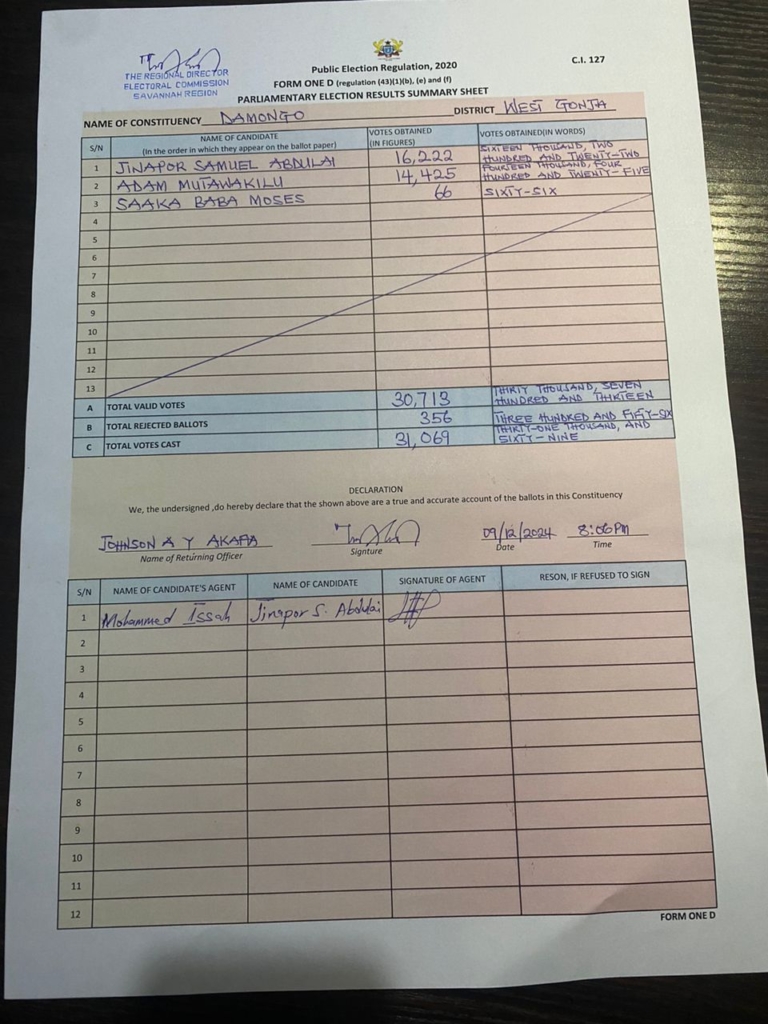 THE REGIONAL DIRECTOR
ELECTORAL COMMISSION
SAVANNAH REGION
Public Election Regulation, 2020
C.I. 127
FORM ONE D (regulation (43)(1)(b), (e) and (f)
PARLIAMENTARY ELECTION RESULTS SUMMARY SHEET
NAME OF CONSTITUENCY DAMONGO DISTRICT WEST GONJA
S/N NAME OF CANDIDATE (In the order in which they appear on the ballot paper) VOTES OBTAINED (IN FIGURES) VOTES OBTAINED(IN WORDS)
1 JINAPOR SAMUEL ABDULAI 16,222 SIXTEEN THOUSAND, TWO HUNDRED AND TWENTY-TWO
2 ADAM MUTAWAKILU 14,425 FOURTEEN THOUSAND, FOUR HUNDRED AND TWENTY-FIVE
3 SAAKA BABA MOSES 66 SIXTY-SIX
4
5
6
7
8
9
10
11
12
13
A TOTAL VALID VOTES 30,713 THIRTY THOUSAND, SEVEN HUNDRED AND THIRTEEN
B TOTAL REJECTED BALLOTS 356 THREE HUNDRED AND FIFTY-SIX
C TOTAL VOTES CAST 31,069 THIRTY-ONE THOUSAND, AND SIXTY-NINE
DECLARATION
We, the undersigned ,do hereby declare that the shown above are a true and accurate account of the ballots in this Constituency
JOHNSON A Y AKAFA 09/12/2024 8:06PM
Name of Returning Officer Signture Date Time
S/N NAME OF CANDIDATE'S AGENT NAME OF CANDIDATE SIGNATURE OF AGENT RESON, IF REFUSED TO SIGN
1 Mohammed Issah Jinapor S. Abdulai
2
3
4
5
6
7
8
9
10
11
12
FORM ONE D